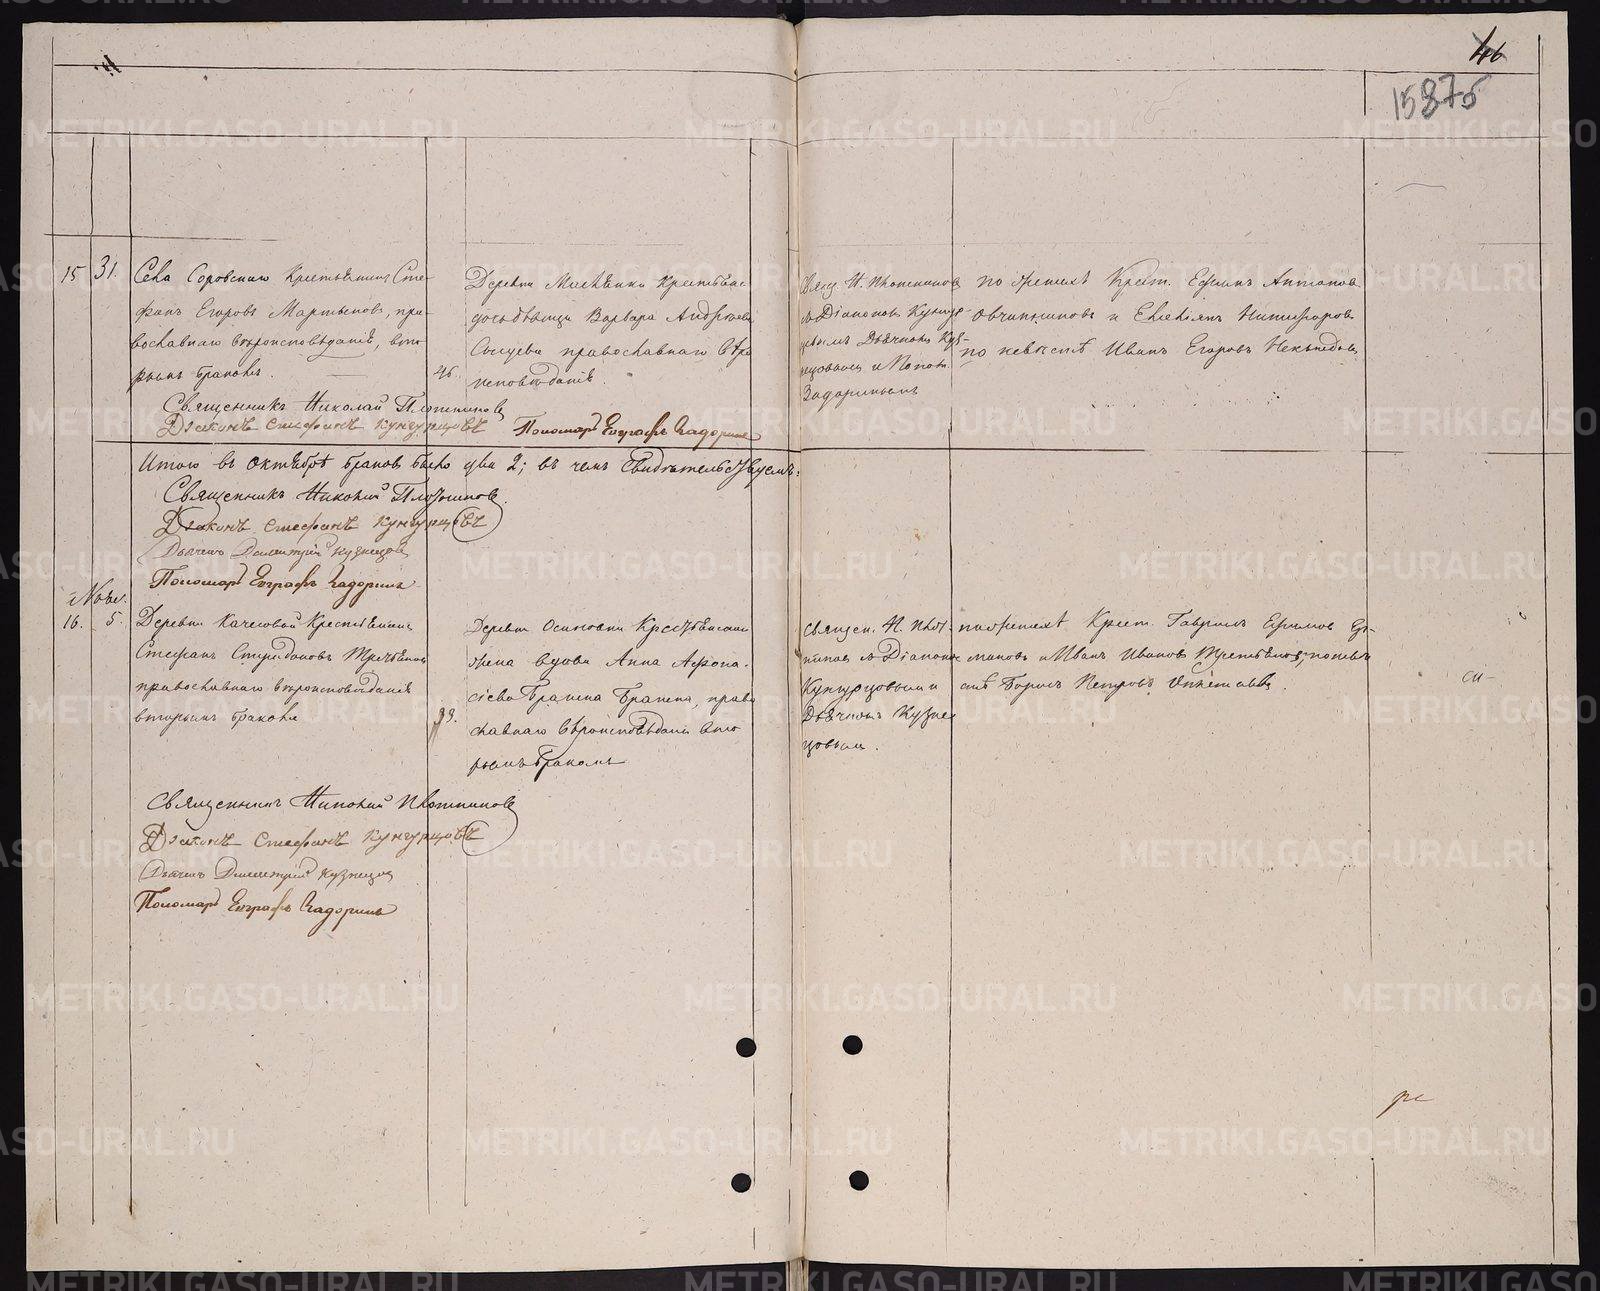 46
15875
15 31. Села Соровскаго Крестьянинъ Сте-
фанъ Егоровъ Мартыновъ, пра-
вославнаго вѣроисповѣданiя, вто
рымъ бракомъ.
46.
Деревни Крестьянс
Варвара Андреева
православнаго вѣро
исповѣданiя.
Свящ Н. Плотниковъ
съ Дiакономъ Кунгур
цовымъ Дьячкомъ Куз-
нецовымъ и Поном.
Задоринымъ
по женихѣ Крест. Ефимъ Антоновъ
Овчинниковъ и Емелiянъ Никифоров
по невѣстѣ Иванъ Егоровъ
Священникъ Николай Плотниковъ
Дiаконъ Стефанъ Кунгурцовъ Пономарь Евграфъ Задоринъ
Итого въ октябрѣ браковъ было два 2; въ чемъ свидѣтельствуемъ:
Священникъ Николай Плотниковъ.
Дiаконъ Стефанъ Кунгурцовъ
Дьячекъ Димитрiй Кузнецовъ
Пономарь Евграфъ Задоринъ
Нояб.
16. 5. Деревни Качесовой Крестьянинъ
Стефанъ Спиридоновъ Третьяковъ
православнаго вѣроисповѣданiя
вторымъ бракомъ
39.
Деревни Осиновки Крестьянская
жена вдова Анна Афона-
сiева Брагина Брагина, право
славнаго вѣроисповѣданiя вто
рымъ бракомъ
Священ. Н. Плот-
никовъ съ Дiаконом
Кунгурцовымъ и
Дьячкомъ Кузне
цовымъ.
по женихѣ Крест. Гаврилъ Ефимовъ
и Иванъ Ивановъ Третьяковъ, по невѣ
стѣ Борисъ Петровъ
Священникъ Николай Плотниковъ
Дiаконъ Стефанъ Кунгурцовъ
Дьячекъ Димитрiй Кузнецовъ
Пономарь Евграфъ Задоринъ
METRIKI.GASO-URAL.RU